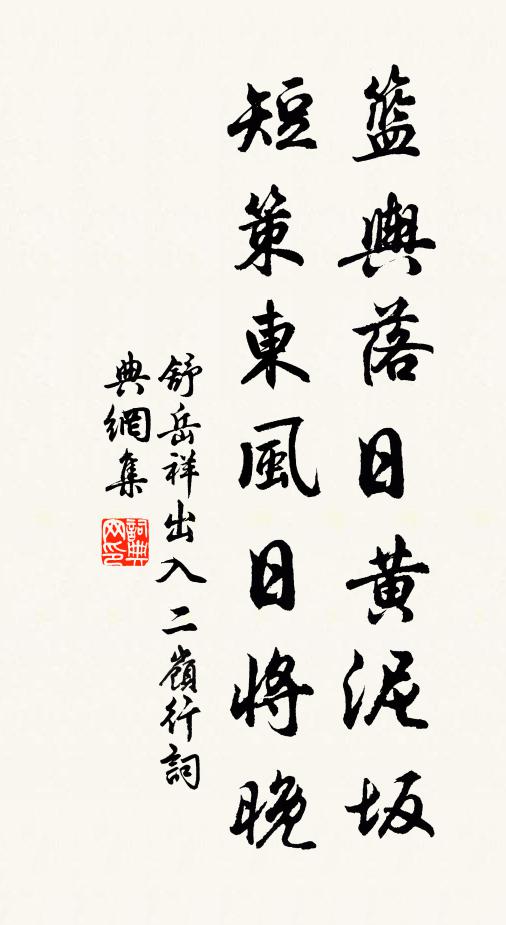 籃輿落日黄泥坂
短策東風日將晚
舒岳祥出入二嶺行詞
典網集
詞典网印